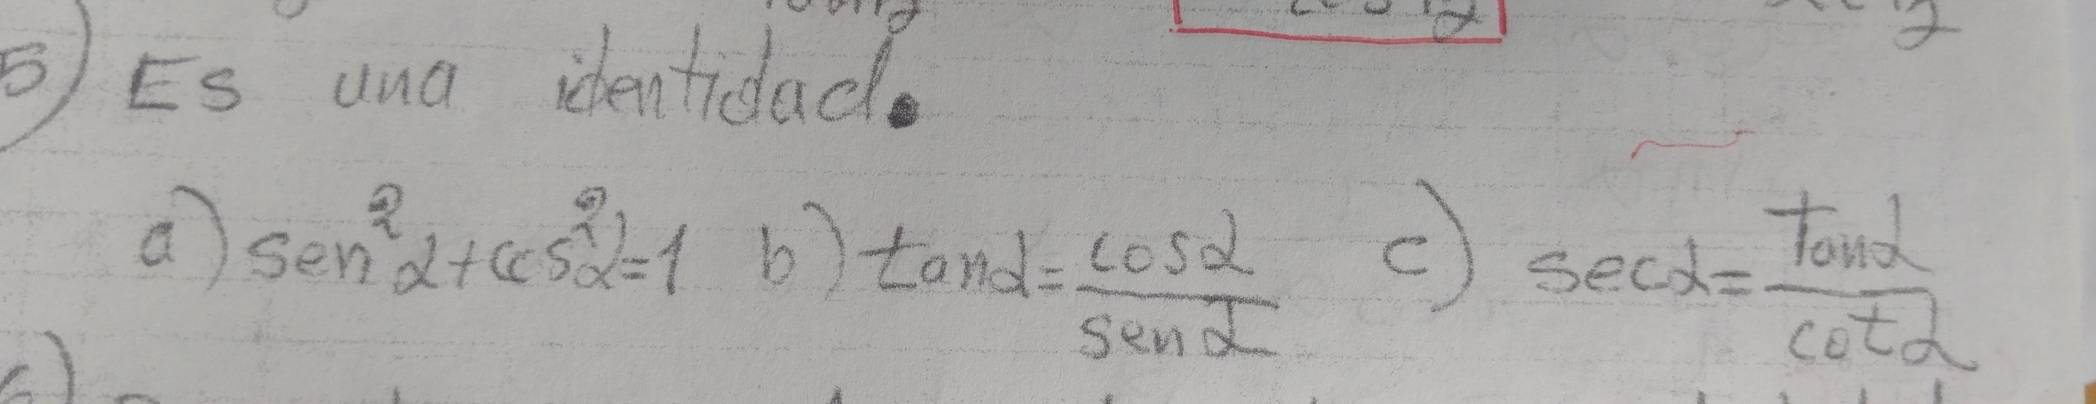 5) Es una identidad.
a) sen²α+cos²α=1 b) tanα=cosα/senα c) secα=Tanα/cotα
6)